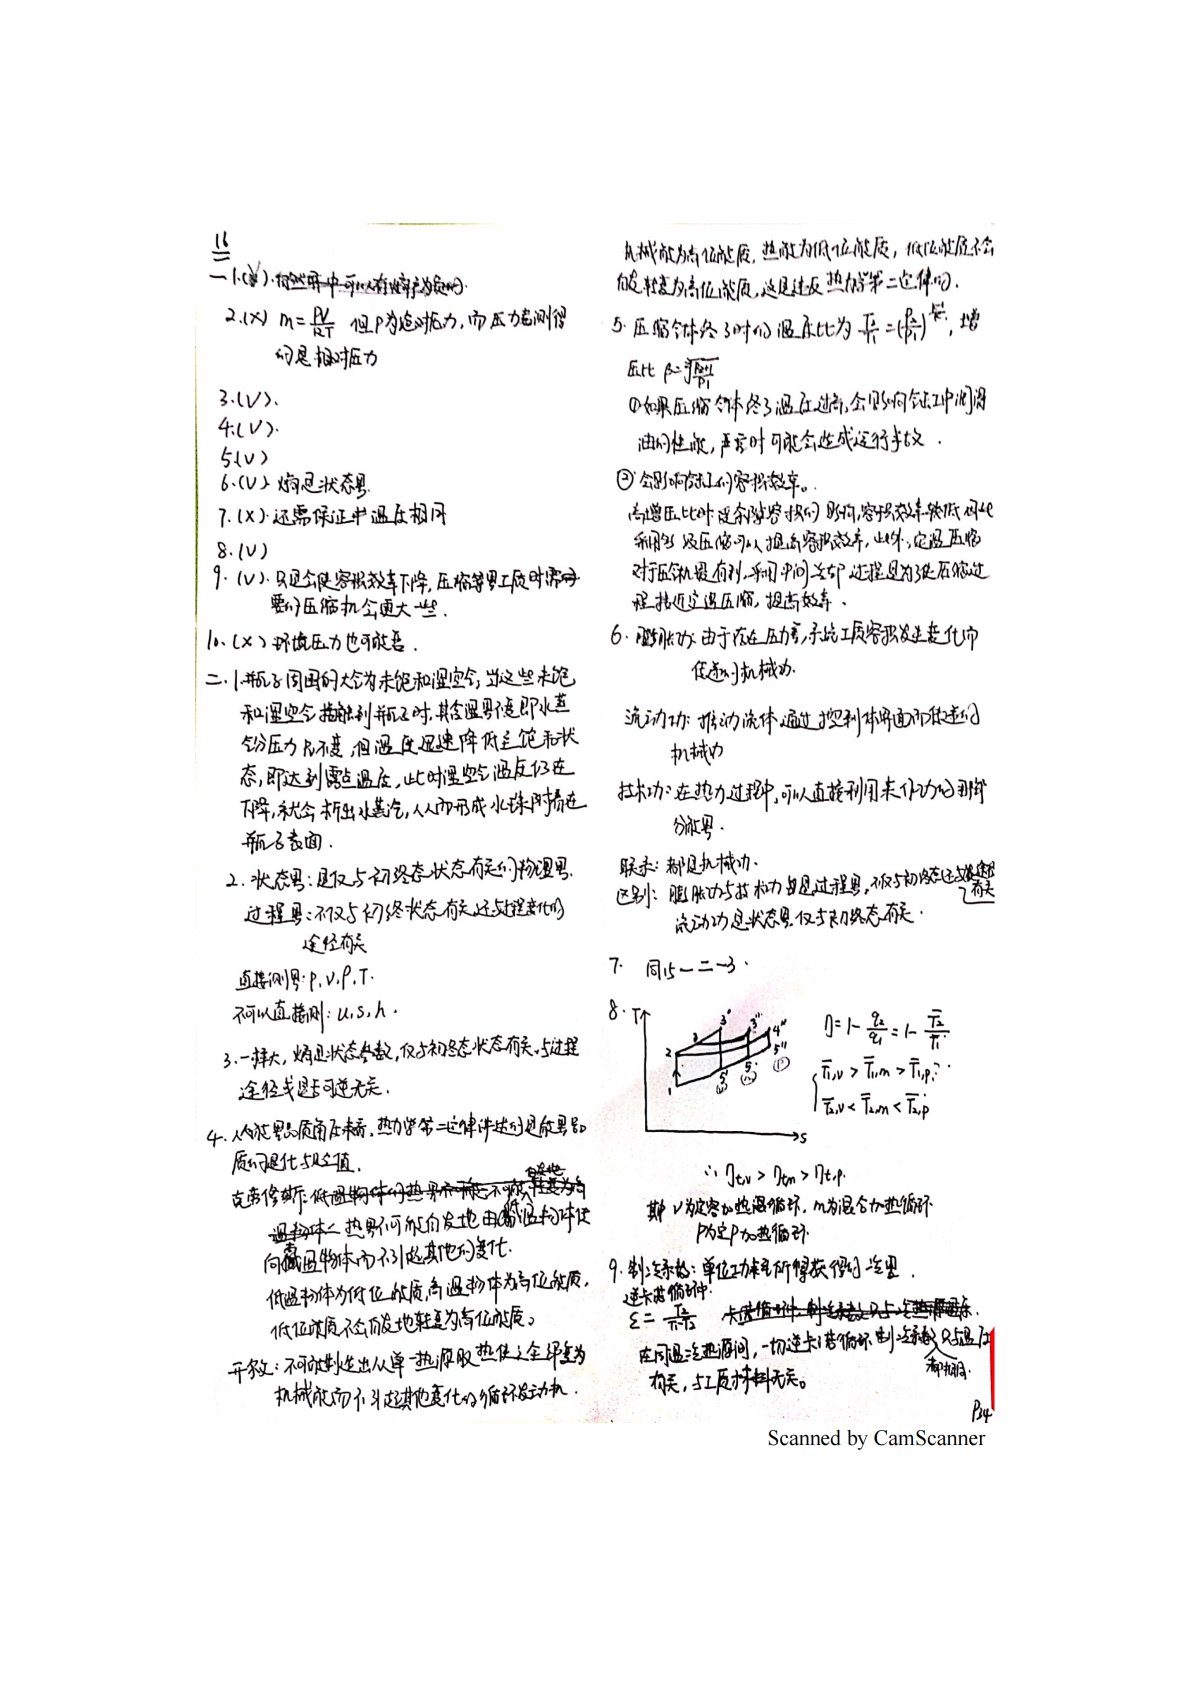 16
一 1.(√).
2.(X) m=PV/RT 但P为绝对压力,而压力表测得
的是相对压力
3.(√).
4.(√).
5.(√)
6.(√) 熵是状态量.
7.(X).还需保证中温度相同
8.(√)
9.(√).只是会使容积效率下降,压缩等量工质时需
要的压缩机会更大一些.
10.(X) 环境压力也可改善.
二.1.瓶子周围的大气为未饱和湿空气,当这些未饱
和湿空气接触到瓶子时,其含湿量不变即水蒸
气分压力Pv不变,但温度迅速降低至饱和状
态,即达到露点温度,此时湿空气温度仍在
下降,就会析出水蒸汽,从而形成水珠附着在
瓶子表面.
2. 状态量:是仅与初终态状态有关的物理量.
过程量:不仅与初终状态有关,还与过程变化的
途径有关
直接测量:P,V,ρ,T.
不可以直接测:u,s,h.
3.一样大,熵是状态参数,仅与初终态状态有关,与过程
途径或是否可逆无关.
4.从能量品质角度来看,热力学第二定律讲述的是能量品
质的退化与贬值.
克劳修斯:
热量不可能自发地由低温物体传
向高温物体而不引起其他的变化.
低温物体为低位能质,高温物体为高位能质,
低位能质不会自发地转变为高位能质。
开尔文:不可能制造出从单一热源取热使之全部变为
机械能而不引起其他变化的循环发动机.
机械能为高位能质,热能为低位能质,低位能质不会
自发转变为高位能质,这是违反热力学第二定律的.
5.压缩气体终了时的温度比为 T2/T1=(P2/P1)^(k-1/k),增
压比
①如果压缩气体终了温度过高,会影响气缸中润滑
油的性能,严重时可能会造成运行事故.
②会影响气缸的容积效率。
高增压比时受余隙容积的影响,容积效率较低,因此
利用多级压缩可以提高容积效率,此外,定温压缩
对于压气机最有利,采用中间冷却过程是为了使压缩过
程接近定温压缩,提高效率.
6.膨胀功:由于存在压力差,系统工质容积发生变化而
传递的机械功.
流动功:推动流体通过控制体界面而传递的
机械功
技术功:在热力过程中,可以直接利用来作功的那部
分能量.
联系:都是机械功.
区别:膨胀功与技术功与是过程量,不仅与初终态还与途径有关
流动功是状态量,仅与初终态有关.
7. 同15一二一3.
8. T
3' 3'' 4''
3
2 5''
1 5' 5
S
η=1-q2/q1=1-T̄2/T̄1
T̄1,v > T̄1,m > T̄1,p;
T̄2,v < T̄2,m < T̄2,p
∴ηt,v > ηt,m > ηt,p.
其中 v为定容加热循环,m为混合加热循环
P为定P加热循环.
9.制冷系数:单位功耗所能获得的冷量.
逆卡诺循环中.
ε=T2/T1-T2
在同温冷热源间,一切逆卡诺循环制冷系数都相同,只与温度
有关,与工质材料无关。
P34
Scanned by CamScanner